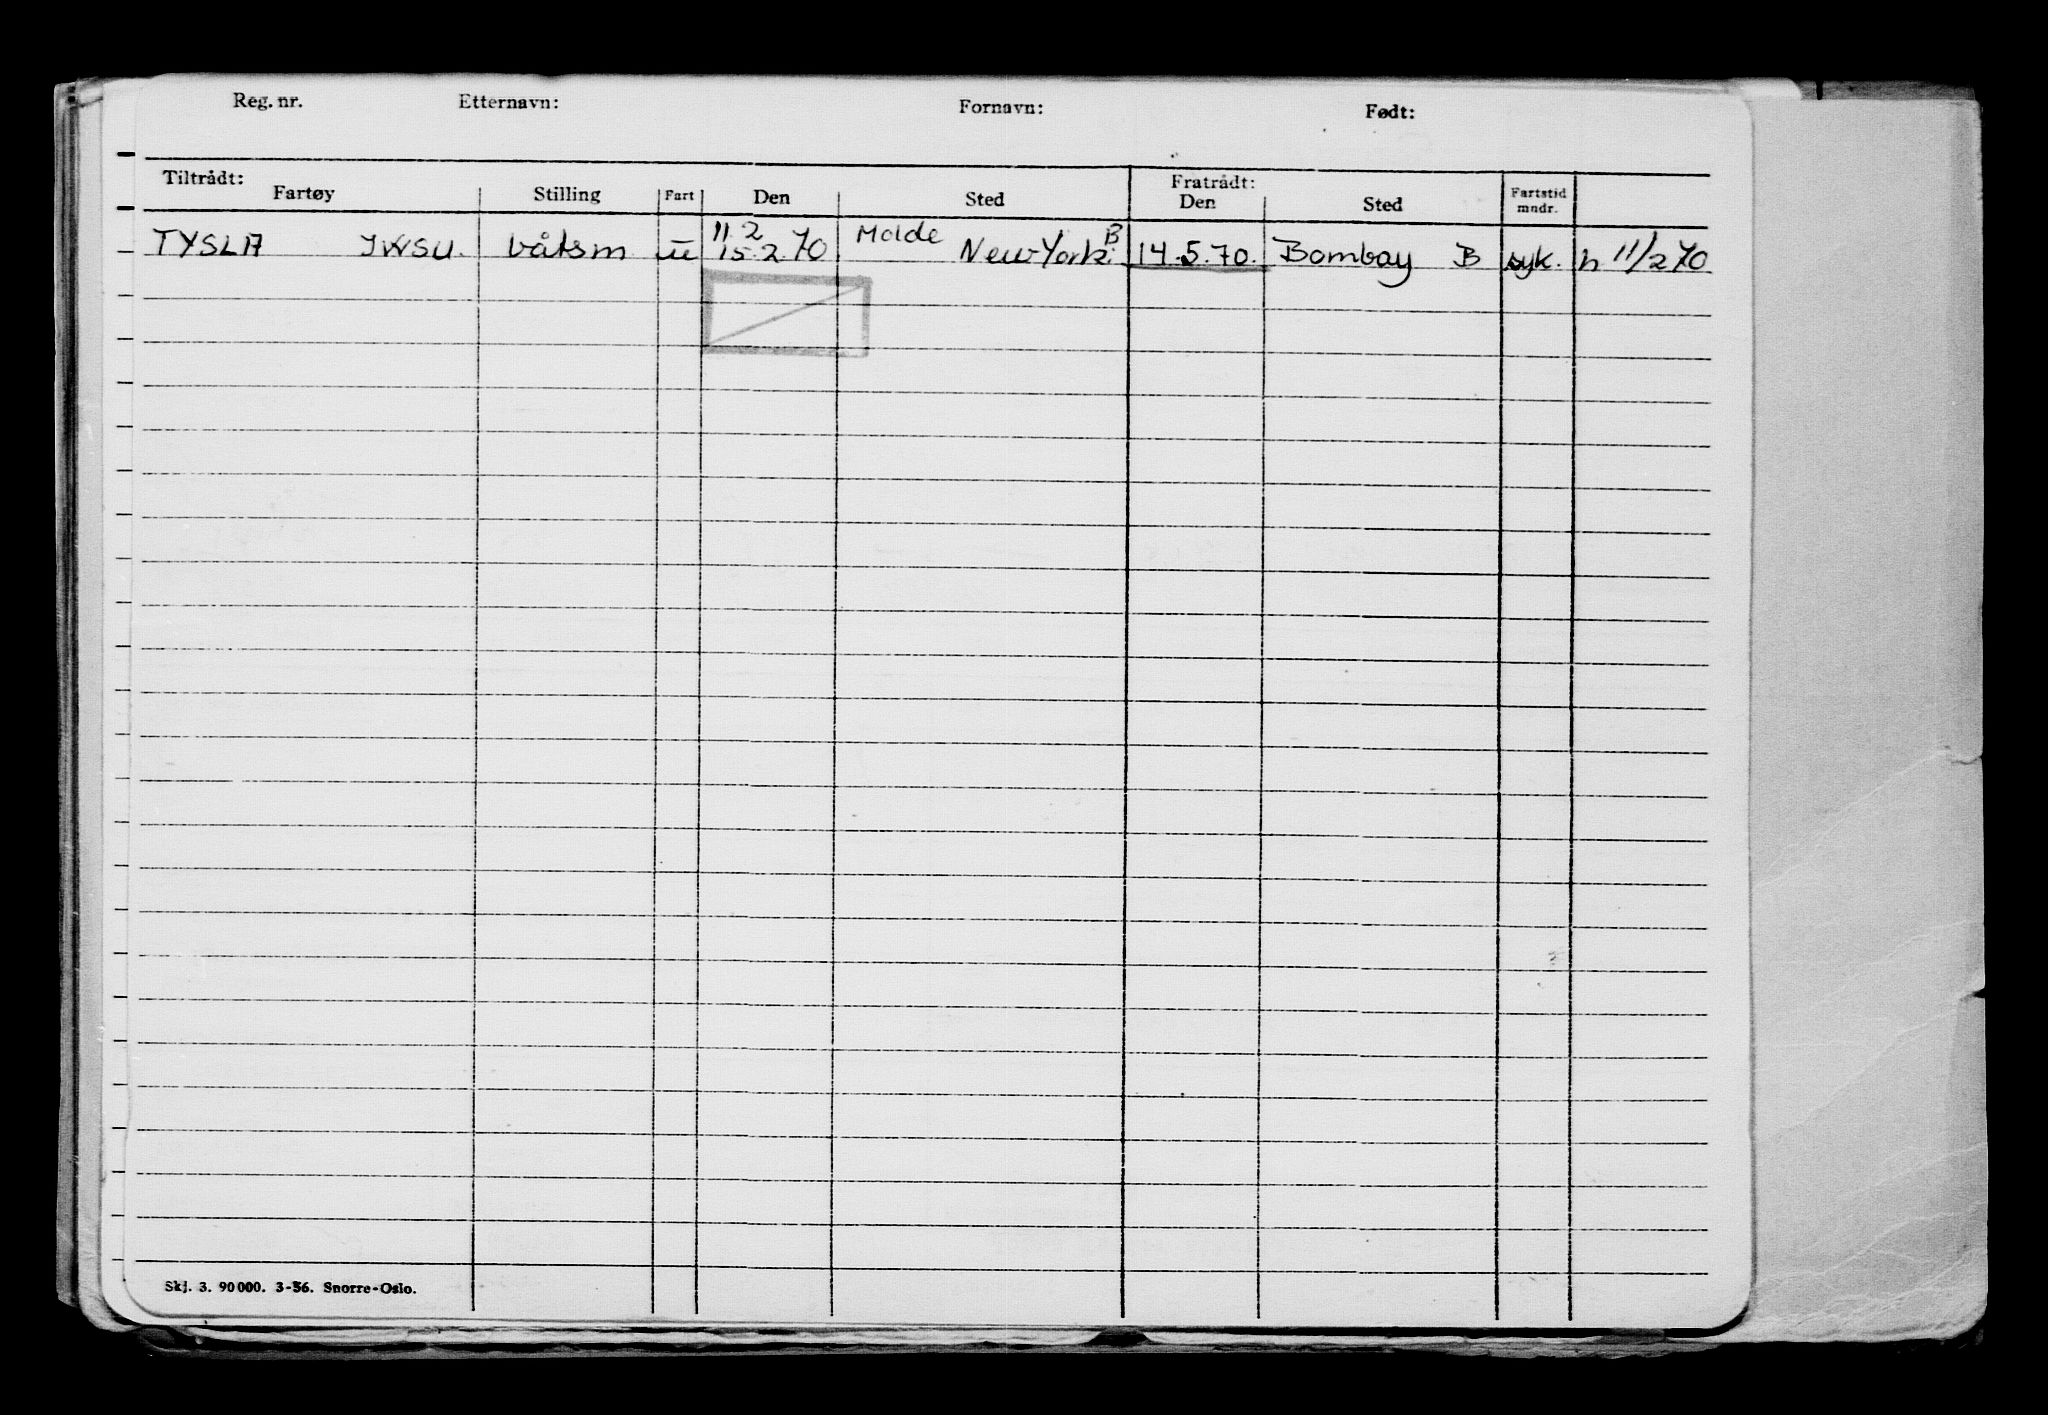 Reg. nr. Etternavn: Fornavn: Født:
Tiltrådt: Fratrådt:
Fartøy Stilling Fart Den Sted Den Sted Fartstid mndr.
11.2 Molde B
TYSLA JWSU. båtsm u 15.2.70 New-York. 14.5.70. Bombay B syk. h 11/2 70
Skj. 3. 90 000. 3-56. Snorre-Oslo.